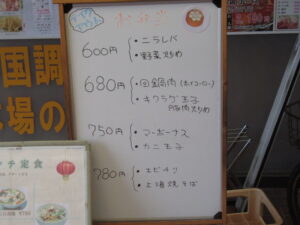 テイクアウト
お弁当
600円
・ニラレバ
・野菜炒め
680円
・回鍋肉(ホイコーロー)
・キクラゲ玉子
豚肉炒め
750円
・マーボーナス
・カニ玉子
780円
・エビチリ
・上海焼そば
国調
場の
ンチ定食